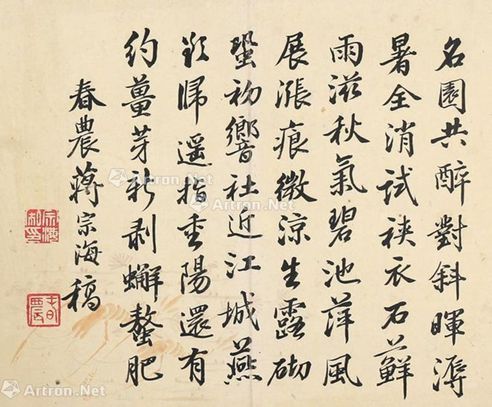 名園共醉對斜暉溽
暑全消試裌衣石蘚
雨滋秋氣碧池萍風
展漲痕微涼生露砌
蛩初響社近江城燕
欲歸遥指重陽還有
約薑芽新剥蠏螯肥
春農蔣宗海稿
Artron.Net
Artron.Net
Artron.Net
Artron.Net